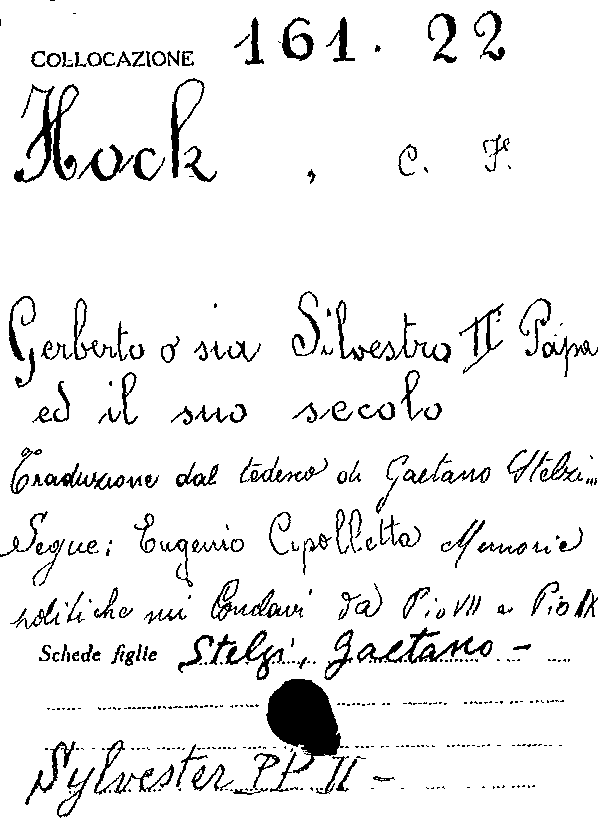 COLLOCAZIONE 161. 22
Hock , C. F.
Gerberto o sia Silvestro II Papa
ed il suo secolo
Traduzione dal tedesco di Gaetano Stelzi...
Segue: Eugenio Cipolletta Memorie
politiche sui Conclavi da Pio VII a Pio IX
Schede figlie Stelzi, Gaetano -
Sylvester PP. II -